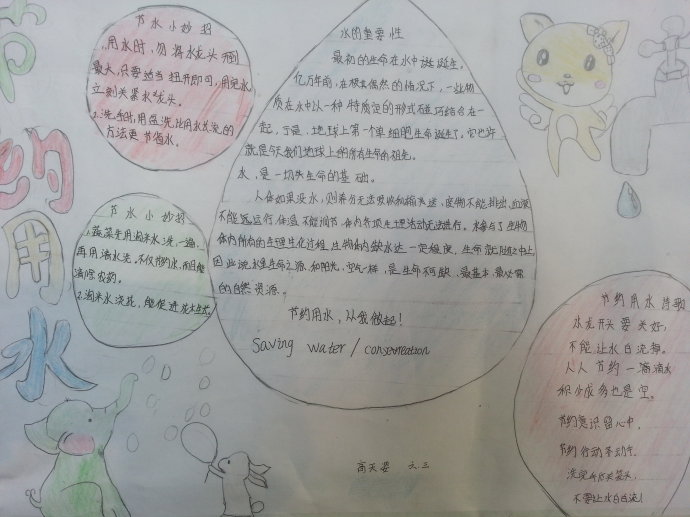 节约用水
节水小妙招
1.用水时,勿将水龙头開到
最大,只要适当扭开即可,用完水
立刻关紧水龙头。
2.洗手时,用盆洗比用水长洗的
方法更节省水。
节水小妙招
1.蔬菜先用淘米水洗一遍,
再用清水洗。不仅节约水,而且能
清除农药。
2.淘米水浇花,能促进花木生长。
水的重要性
最初的生命在水中诞诞生。
亿万年前,在极其偶然的情况下,一些物
质在水中以一种特质定的形式碰巧结合在一
起,于是,地球上第一个单细胞生命诞生了,它也许
就是今天我们地球上的所有生命的祖先。
水,是一切生命的基础。
人体如果没水,则养分无法吸收和输送,废物不能排出,血液
不能运行,体温不能调节,体内各项生理活动无法进行。水参与了生物
体内所有的生理生化过程,生物体内缺水达一定程度,生命就随之中止
因此说水是生命之源,和阳光,空气一样,是生命不可缺,最基本,最必需
的自然资源。
节约用水,从我做起!
Saving water / conservation
节约用水诗歌
水龙开关要关好,
不能让水白流掉。
人人节约一滴滴水
积少成多也是宝。
节约意识留心中,
节约行动
洗完
不要让水白白流!
六.三